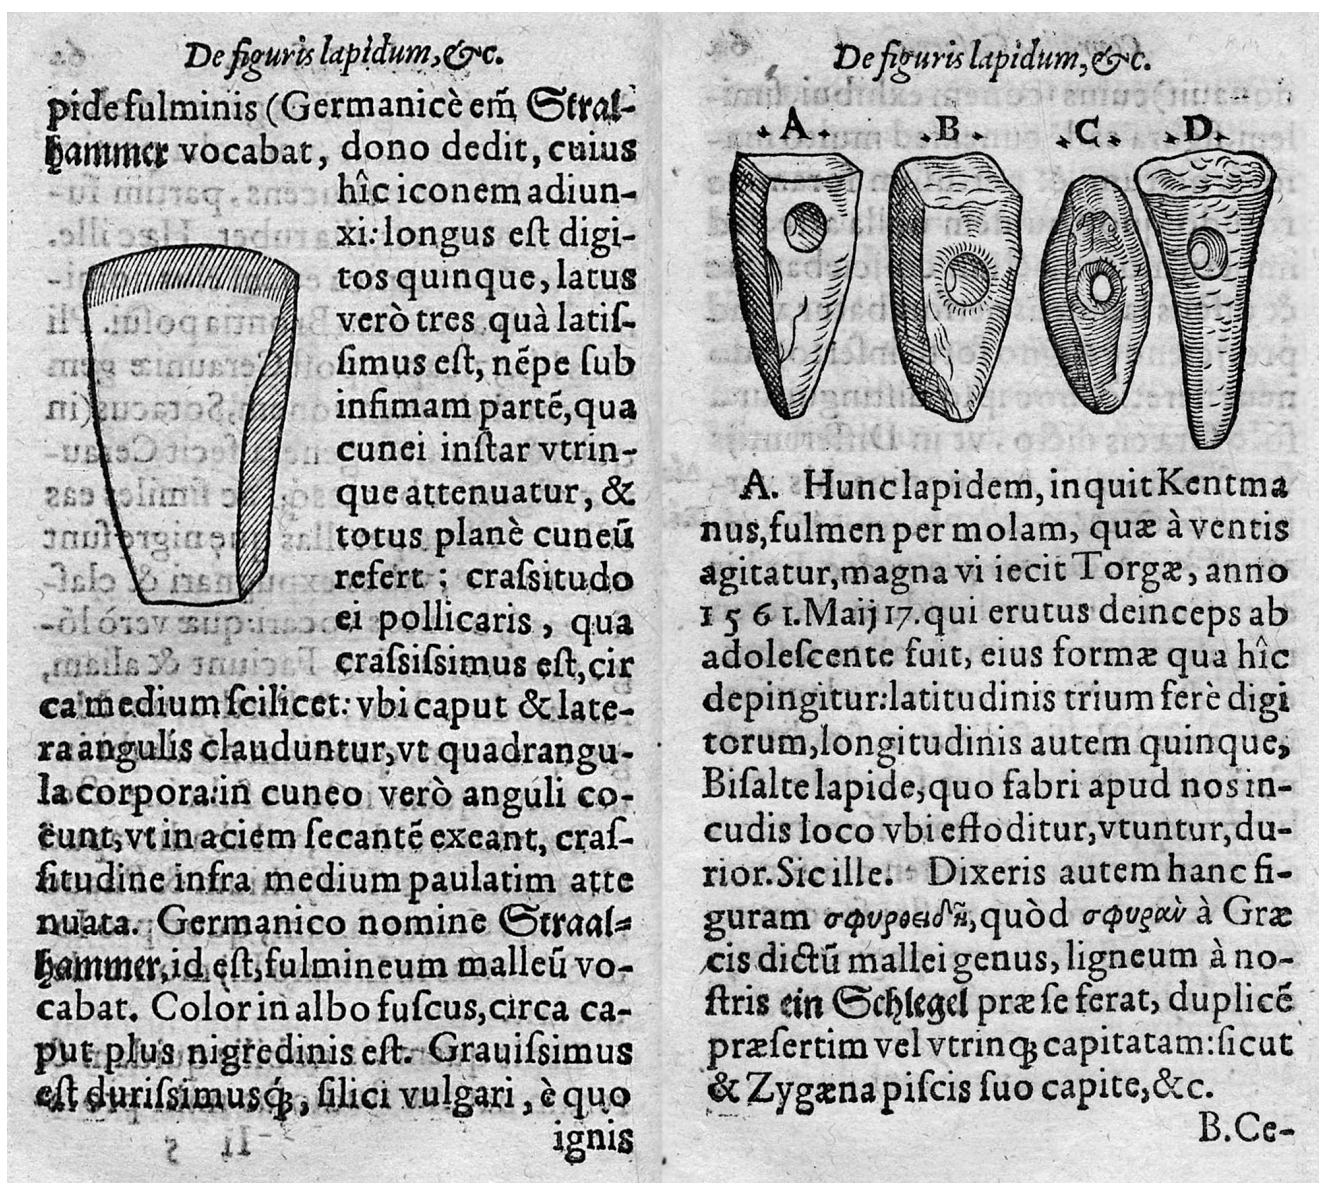 De figuris lapidum, &c.
pide fulminis (Germanicè em̃ Stral-
hammer vocabat, dono dedit, cuius
hîc iconem adiun-
xi: longus eſt digi-
tos quinque, latus
verò tres quà latiſ-
ſimus eſt, nẽpe ſub
infimam partẽ, qua
cunei inſtar vtrin-
que attenuatur, &
totus planè cuneũ
refert ; craſsitudo
ei pollicaris, qua
craſsiſsimus eſt, cir
ca medium ſcilicet: vbi caput & late-
ra angulis clauduntur, vt quadrangu-
la corpora: in cuneo verò anguli co-
ëunt, vt in aciem ſecantẽ exeant, craſ-
ſitudine infra medium paulatim atte
nuata. Germanico nomine Straal-
hammer, id eſt, fulmineum malleũ vo-
cabat. Color in albo fuſcus, circa ca-
put plus nigredinis eſt. Grauiſsimus
eſt duriſsimusq́;, ſilici vulgari, è quo
ignis
De figuris lapidum, &c.
A B C D
A. Hunc lapidem, inquit Kentma
nus, fulmen per molam, quæ à ventis
agitatur, magna vi iecit Torgæ, anno
1561. Maij 17. qui erutus deinceps ab
adoleſcente fuit, eius formæ qua hîc
depingitur: latitudinis trium ferè digi
torum, longitudinis autem quinque,
Biſalte lapide, quo fabri apud nos in-
cudis loco vbi effoditur, vtuntur, du-
rior. Sic ille. Dixeris autem hanc fi-
guram σφυροειδῆ, quòd σφυραὺ à Græ
cis dictũ mallei genus, ligneum à no-
ſtris ein Schlegel præ ſe ferat, duplicẽ
præſertim vel vtrinq; capitatam: ſicut
& Zygæna piſcis ſuo capite, &c.
B. Ce-